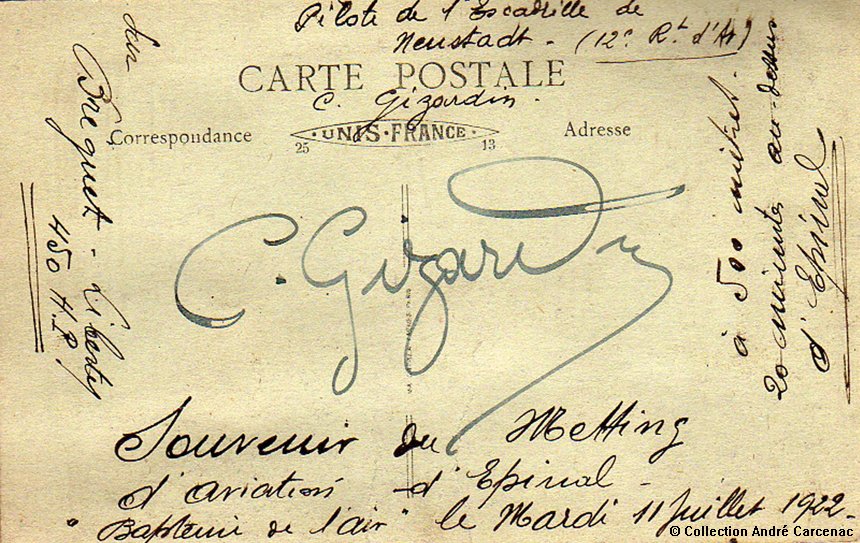 Pilote de l'Escadrille de
Neustadt - (12e Rt d'Av)
CARTE POSTALE
C. Gizardin.
Correspondance
UNIS-FRANCE
25
13
Adresse
Sur
Breguet - Liberty
450 H.P.
C. Gizardin
à 500 mètres.
20 minutes au-dessus
d'Epinal
Souvenir du Metting
d'aviation d'Epinal -
"Baptême de l'air" le Mardi 11 Juillet 1922 -
© Collection André Carcenac